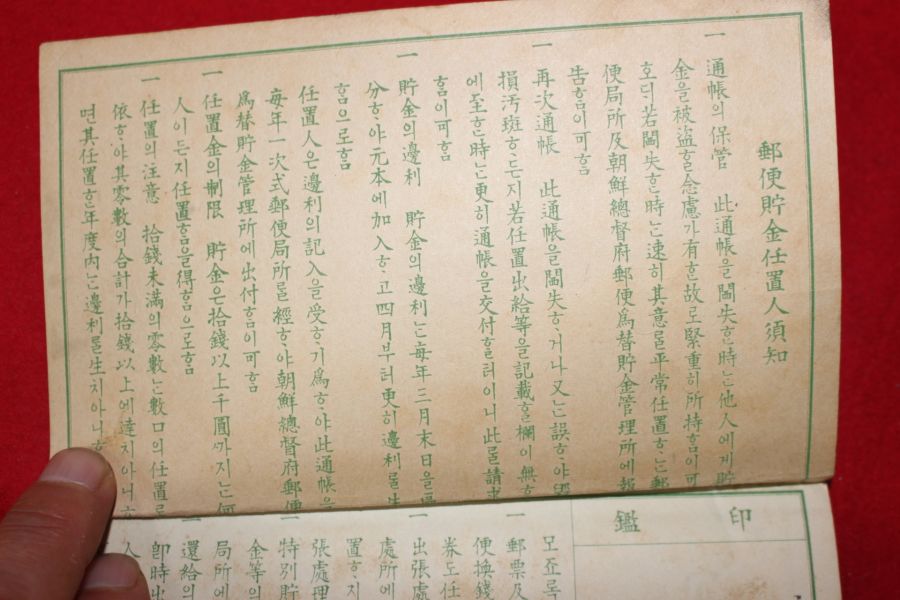 郵便貯金任置人須知
一 通帳의保管 此通帳을閪失ᄒᆞᆫ時ᄂᆞᆫ他人에게貯
金을被盜ᄒᆞᆯ念慮가有ᄒᆞᆫ故로緊重히所持ᄒᆞᆷ이可
ᄒᆞ디若閪失ᄒᆞᆫ時ᄂᆞᆫ速히其意ᄅᆞᆯ平常任置ᄒᆞᄂᆞᆫ郵
便局所及朝鮮總督府郵便爲替貯金管理所에報
告ᄒᆞᆷ이可ᄒᆞᆷ
一 再次通帳 此通帳을閪失ᄒᆞ거나又ᄂᆞᆫ誤ᄒᆞ야毁
損汚斑ᄒᆞᄂᆞᆫ지若任置出給等을記載ᄒᆞᆯ欄이無ᄒᆞ
에至ᄒᆞᆫ時ᄂᆞᆫ更히通帳을交付ᄒᆞᆯ터이니此ᄅᆞᆯ請求
ᄒᆞᆷ이可ᄒᆞᆷ
一 貯金의邊利 貯金의邊利ᄂᆞᆫ每年三月末日을
分ᄒᆞ야元本에加入ᄒᆞ고四月부터更히邊利ᄅᆞᆯ生
ᄒᆞᆷ으로ᄒᆞᆷ
任置人은邊利의記入을受ᄒᆞ기爲ᄒᆞ야此通帳을
每年一次式郵便局所ᄅᆞᆯ經ᄒᆞ야朝鮮總督府郵便
爲替貯金管理所에出付ᄒᆞᆷ이可ᄒᆞᆷ
一 任置金의制限 貯金은拾錢以上千圓ᄭᅡ지ᄂᆞᆫ何
人이든지任置ᄒᆞᆷ을得ᄒᆞᆷ으로ᄒᆞᆷ
一 任置의注意 拾錢未滿의零數ᄂᆞᆫ數口의任置ᄅᆞᆯ
依ᄒᆞ야其零數의合計가拾錢以上에達치아니ᄒᆞ
면其任置ᄒᆞᆫ年度內ᄂᆞᆫ邊利ᄅᆞᆯ生치아니ᄒᆞ
印鑑
모죠록
一 郵票及
便換錢
券도任
一 出張處
處所에
置ᄒᆞ지
張處理
一 特別貯
金等의
局所에
一 還給의
卽時出
人